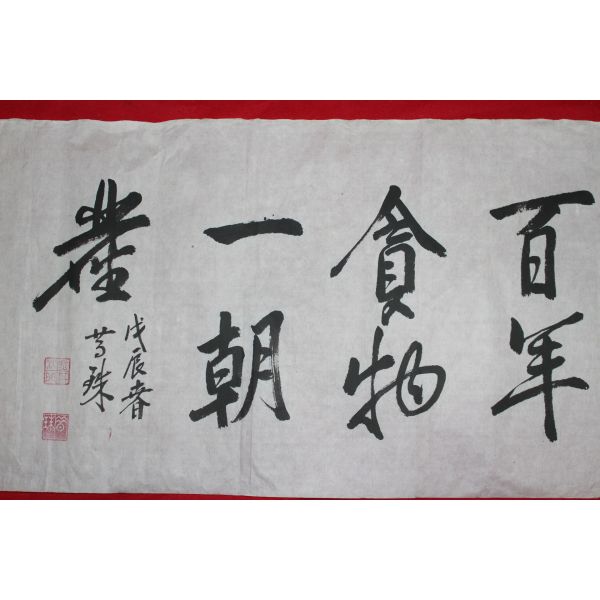 百年
貪物
一朝
塵
戊辰春